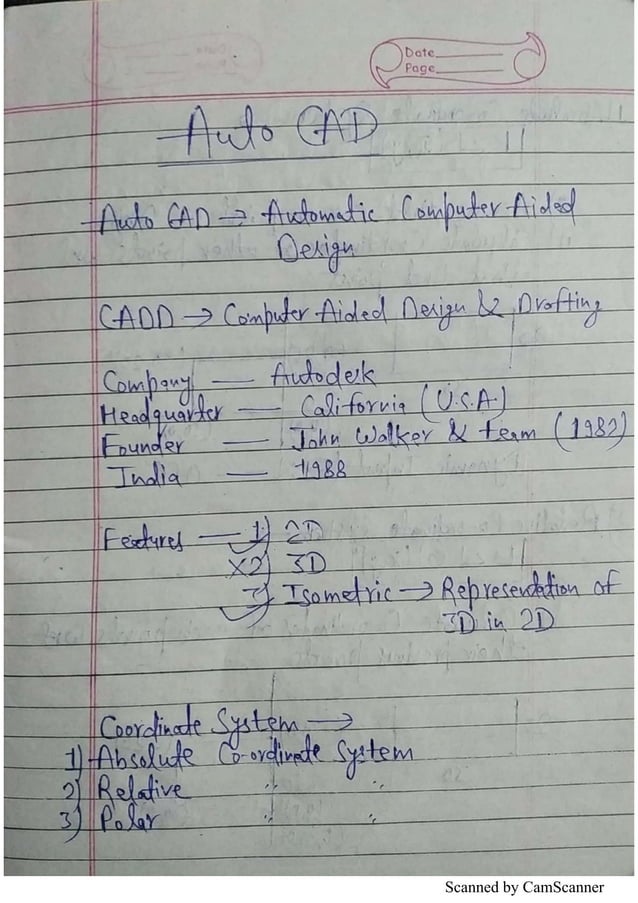 Date
Page
Auto CAD
Auto CAD → Automatic Computer Aided
Design
CADD → Computer Aided Design & Drafting
Company — Autodesk
Headquarter — California (U.S.A.)
Founder — John Walker & team (1982)
India — 1988
Features — 1) 2D
X2) 3D
3) Isometric → Representation of
3D in 2D
Coordinate System →
1) Absolute Co-ordinate System
2) Relative " "
3) Polar " "
Scanned by CamScanner